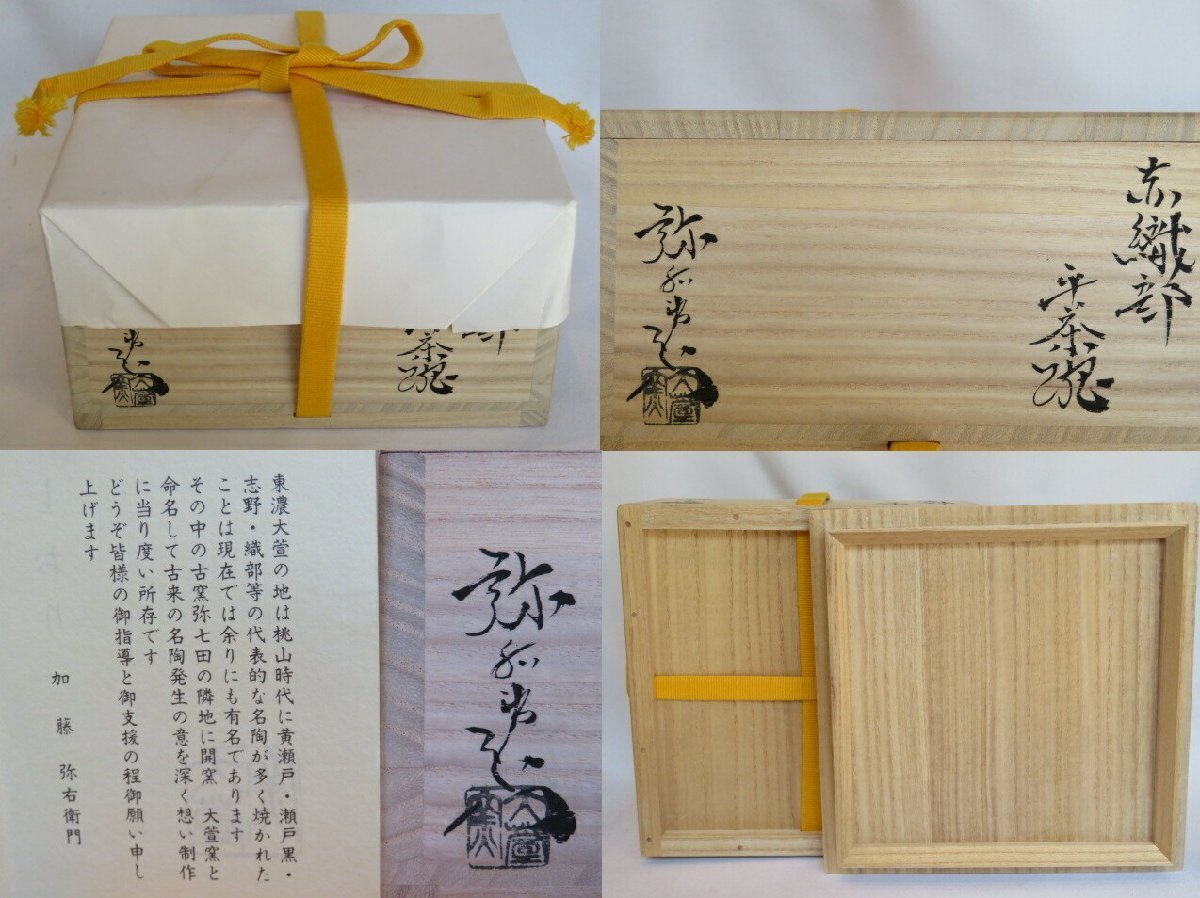 赤織部
平茶碗
弥右衛門
大萱窯
部
茶碗
衛門
大萱窯
東濃大萱の地は桃山時代に黄瀬戸・瀬戸黒・
志野・織部等の代表的な名陶が多く焼かれた
ことは現在では余りにも有名であります
その中の古窯弥七田の隣地に開窯 大萱窯と
命名して古来の名陶発生の意を深く想い制作
に当り度い所存です
どうぞ皆様の御指導と御支援の程御願い申し
上げます
加藤弥右衛門
弥右衛門
大萱窯